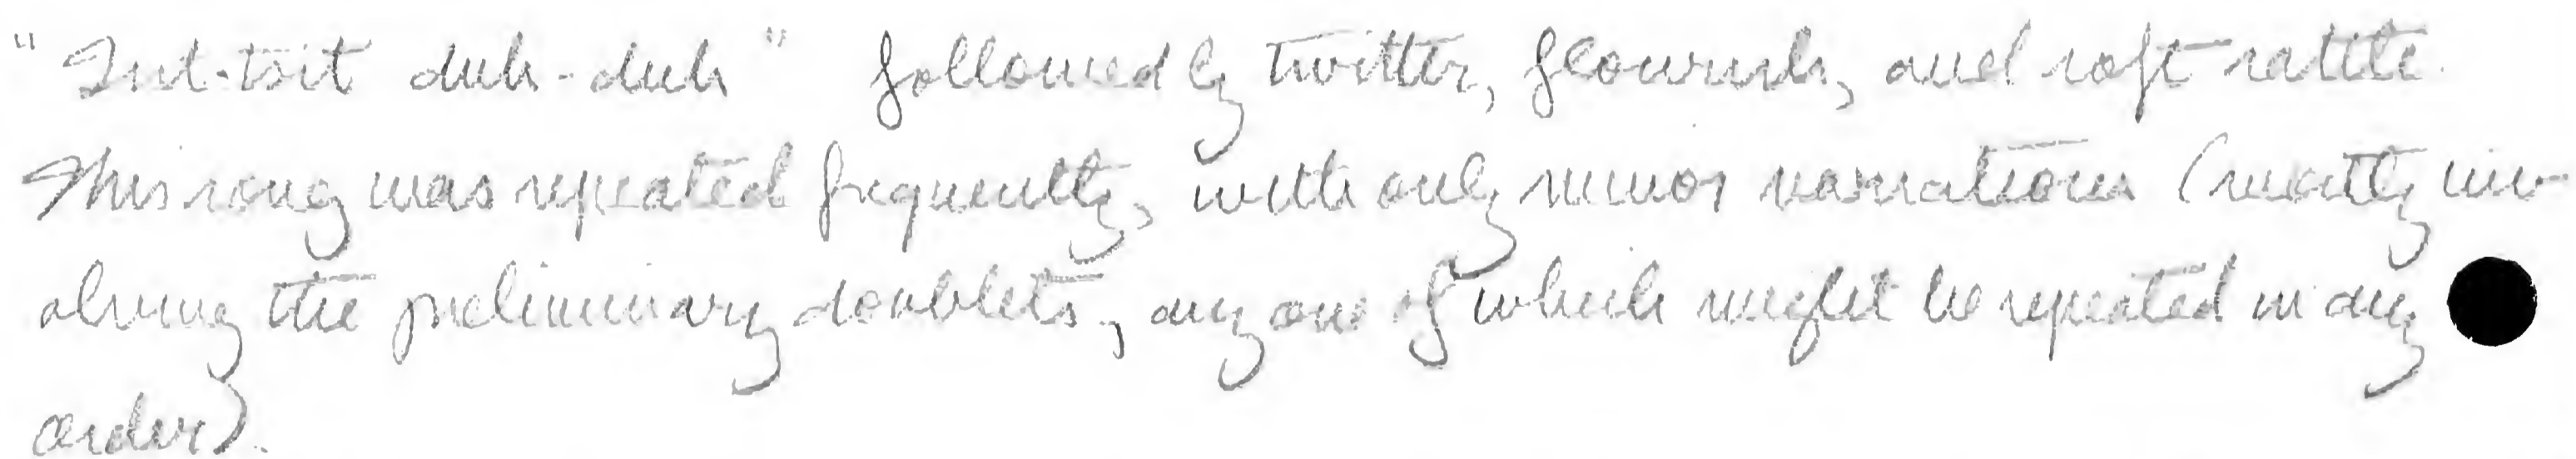 "Tut-toit duh-duh" followed by twitter, flourish, and soft rattle.
This song was repeated frequently, with only minor variations (mostly inv-
olving the preliminary doublets, any one of which might be repeated in any
order).